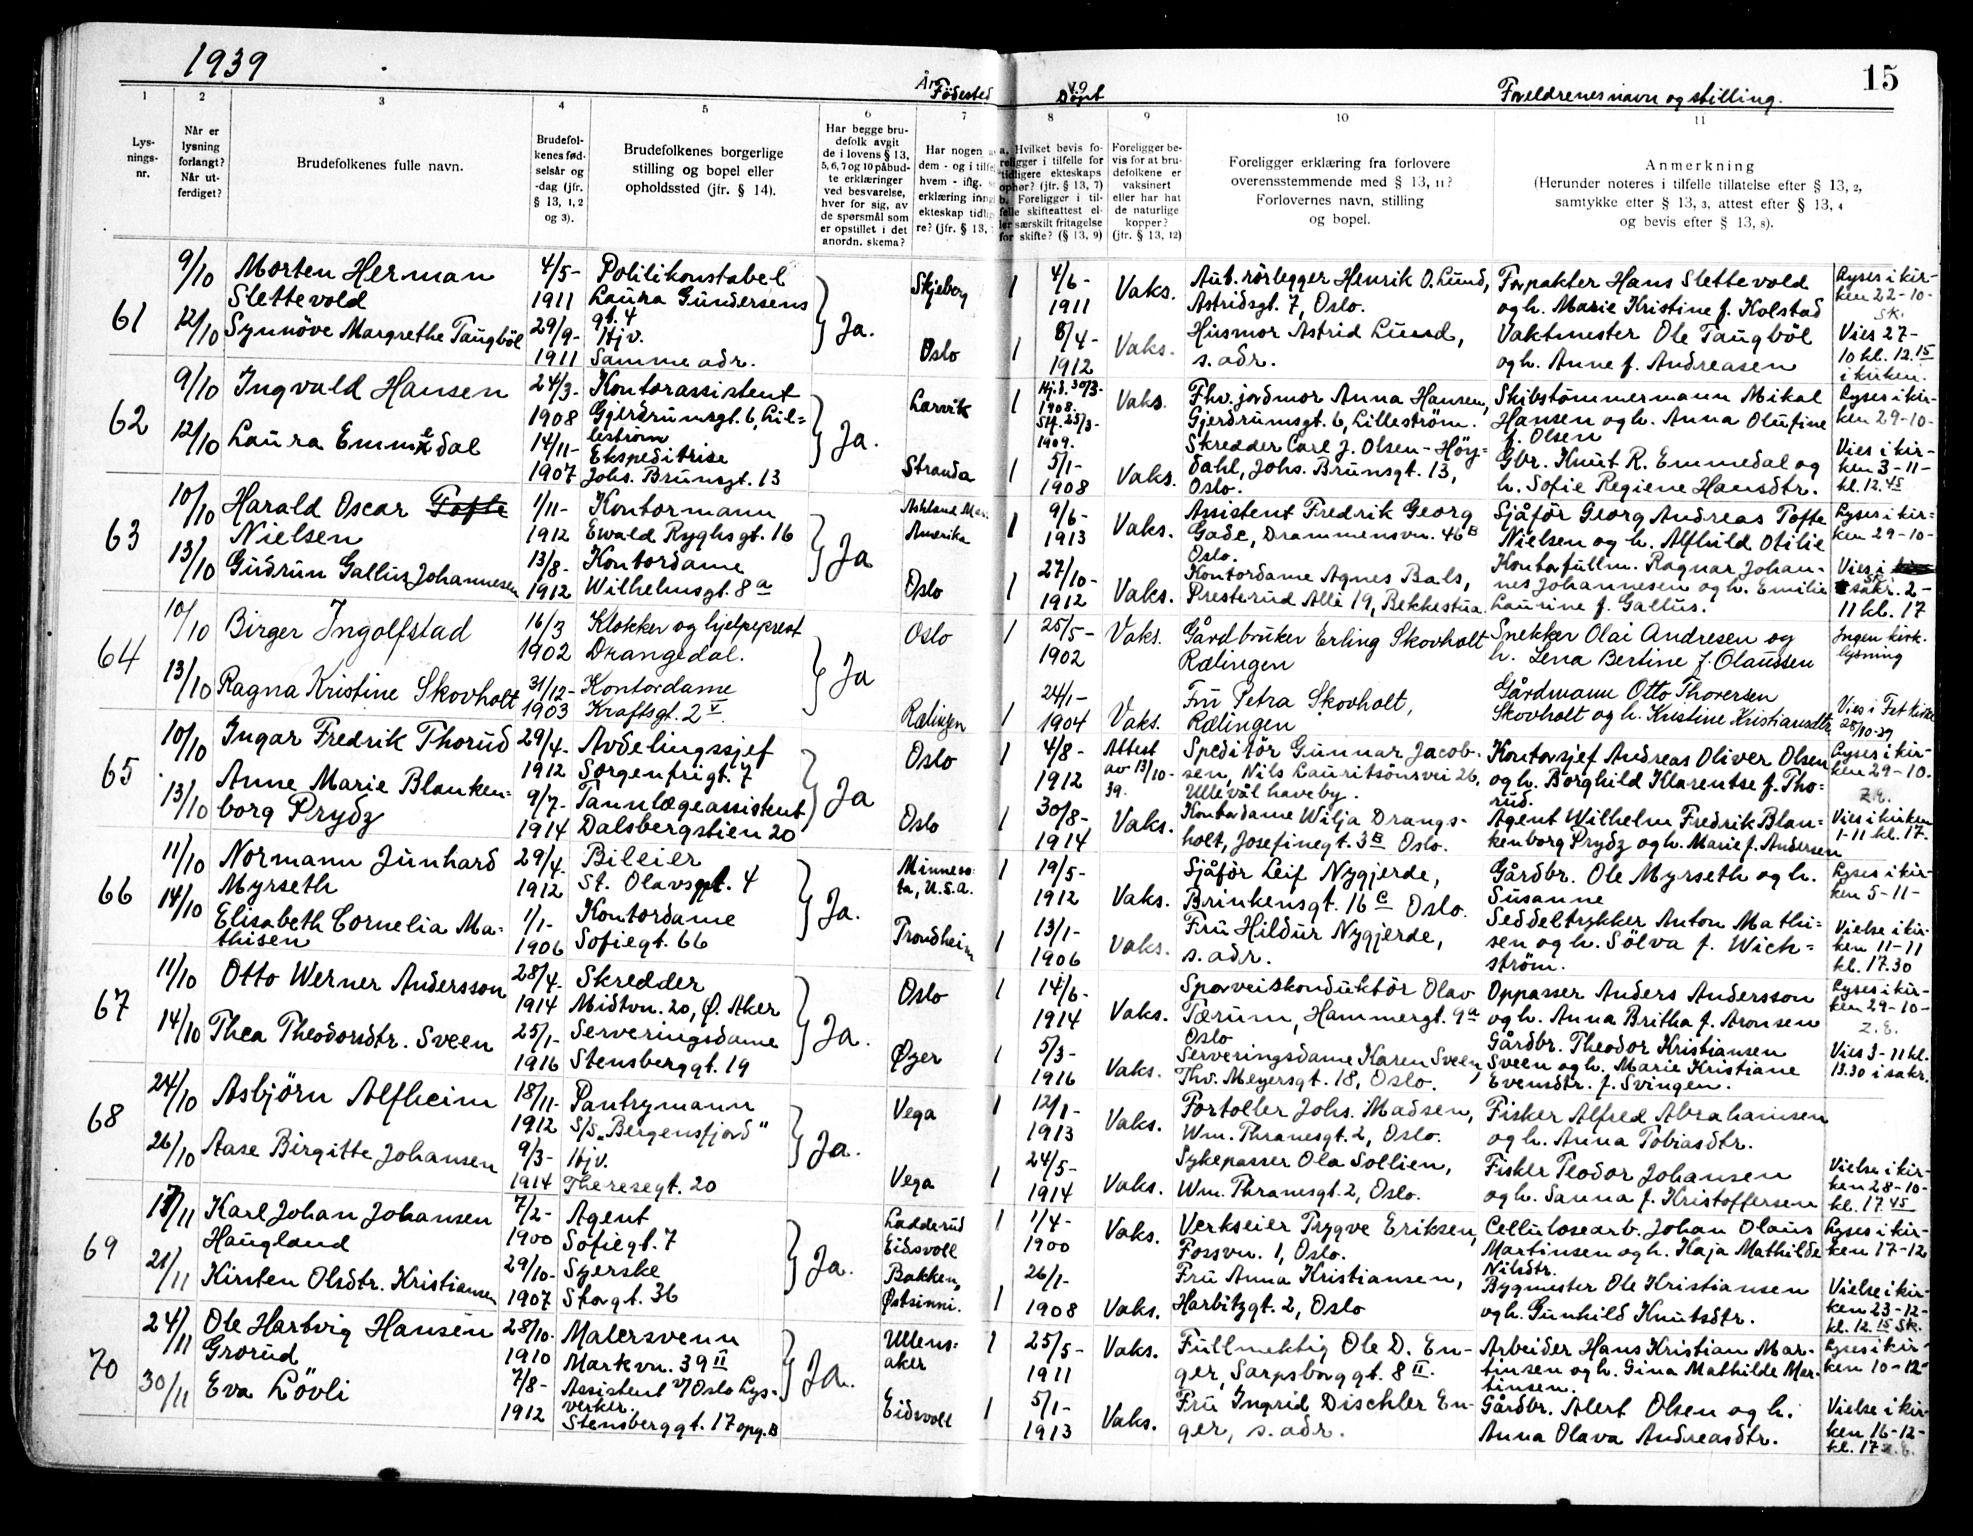 1939
År
Födested
19
Döpt
Foreldrenes navn og stilling.
15
1
2
3
4
5
6
7
8
9
10
11
Lys-
nings-
nr.
Når er
lysning
forlangt?
Når ut-
ferdiget?
Brudefolkenes fulle navn.
Brudefol-
kenes fød-
selsår og
-dag (jfr.
§ 13, 1, 2
og 3).
Brudefolkenes borgerlige
stilling og bopel eller
opholdssted (jfr. § 14).
Har begge bru-
defolk avgit
de i lovens § 13,
5, 6, 7 og 10 påbud-
te erklæringer
ved besvarelse,
hver for sig, av
de spørsmål som
er opstillet i det
anordn. skema?
Har nogen av
dem - og i tilfe
hvem - iflg.
erklæring inng
ekteskap tidlig
re? (jfr. § 13,
a. Hvilket bevis fo-
religger i tilfelle for
tidligere ekteskaps
ophør? (jfr. § 13, 7)
b. Foreligger i til-
felle skifteattest el-
ler særskilt fritagelse
for skifte? (§ 13, 9)
Foreligger be-
vis for at bru-
defolkene er
vaksinert
eller har hat
de naturlige
kopper?
(jfr. § 13, 12)
Foreligger erklæring fra forlovere
overensstemmende med § 13, 11?
Forlovernes navn, stilling
og bopel.
Anmerkning
(Herunder noteres i tilfelle tillatelse efter § 13, 2,
samtykke efter § 13, 3, attest efter § 13, 4
og bevis efter § 13, 8).
61
9/10
12/10
Morten Herman
Slettevold
Synnöve Margrethe Taugböl
4/5-
1911
29/9-
1911
Politikonstabel
Laura Gundersens
gt. 4
Hjv.
Samme adr.
Ja.
Skjeberg
Oslo
1
1
4/6-
1911
8/4-
1912
Vaks.
Vaks.
Aut. rörlegger Henrik O. Lund,
Astridsgt. 7, Oslo.
Husmor Astrid Lund,
s. adr.
Forpakter Hans Slettevold
og h. Marie Kristine f. Kolstad
Vaktmester Ole Taugböl
og h. Anne f. Andreasen
Lyses i kir-
ken 22-10-
Sk.
Vies 27-
10 kl. 12.15
i kirken.
62
9/10
12/10
Ingvald Hansen
Laura Emmedal
24/3-
1908
14/11-
1907
Kontorassistent
Gjerdrumsgt. 6, Lil=
leström
Ekspeditrise
Johs. Brunsgt. 13
Ja.
Larvik
Stranda
1
1
Hj.d. 30/3-
1908.
Stf. 25/3-
1909.
5/1-
1908
Vaks.
Vaks.
Fhv. jordmor Anna Hansen,
Gjerdrumsgt. 6, Lilleström.
Skredder Carl J. Olsen-Höy=
dahl, Johs. Brunsgt. 13,
Oslo.
Skibstömmermann Mikal
Hansen og h. Anna Olufine
f. Olsen
Gbr. Knut R. Emmedal og
h. Sofie Regiene Hansdtr.
Lyses i kir-
ken 29-10-
Vies i kir-
ken 3-11-
kl. 12.45
63
10/10
13/10
Harald Oscar Tofte
Nielsen
Gudrun Gallus Johannesen
1/11-
1912
13/8-
1912
Kontormann
Ewald Ryghsgt. 16
Kontordame
Wilhelmsgt. 8 a
Ja
Amerika
Oslo
1
1
9/6-
1913
27/10-
1912
Vaks.
Vaks.
Assistent Fredrik Georg
Gade, Drammensvn. 46 B
Oslo.
Kontordame Agnes Bals,
Presterud Alle 19, Bekkestua
Sjåför Georg Andreas Tofte
Nielsen og h. Alfhild Otilie
Kontorfullm. Ragnar Johan-
nes Johannesen og h. Emilie
Laurine f. Gallus.
Lyses i kir=
ken 29-10-
Vies i
Sk.
sakr. 2-
11 kl. 17
64
10/10
13/10
Birger Ingolfstad
Ragna Kristine Skovholt
16/3
1902
31/12-
1903
Klokker og hjelpeprest
Drangedal.
Kontordame
Kraftsgt. 2 V.
Ja
Oslo
Rælingen
1
1
25/5-
1902
24/1-
1904
Vaks.
Vaks.
Gårdbruker Erling Skovholt
Rælingen
Fru Petra Skovholt,
Rælingen
Snekker Olai Andresen og
h. Lena Bertine f. Olaussen
Gårdmann Otto Thoversen
Skovholt og h. Kristine Kristiansdtr.
Ingen kirk.
lysning
Vies i Fet kirke
28/10-39
65
10/10
13/10
Ingar Fredrik Thorud
Anne Marie Blanken=
borg Prydz
29/4-
1912
9/7-
1914
Avdelingssjef
Sorgenfrigt. 7
Tannlægeassistent
Dalsbergstien 20
Ja
Oslo
Oslo
1
1
4/8-
1912
30/8-
1914
Attest
av 13/10-
39.
Vaks.
Speditör Gunnar Jacob-
sen, Nils Lauritsönsvei 26,
Ullevål haveby.
Kontordame Wilja Drangs-
holt, Josefinegt. 3 B Oslo.
Kontorsjef Andreas Oliver Olsen
og h. Borghild Klarentse f. Tho=
rud.
Agent Wilhelm Fredrik Blan=
kenborg Prydz og h. Marie f. Andersen
Lyses i kir-
ken 29-10.
Z.E.
Vies i kirken
1-11 kl. 17.
66
11/10
14/10
Normann Junhard
Myrseth
Elisabeth Cornelia Ma-
thisen
29/4-
1912
1/1-
1906
Bileier
St. Olavsgt. 4
Kontordame
Sofiegt. 66
Ja.
Minneso-
ta, U.S.A.
Trondheim
1
1
19/5-
1912
13/1-
1906
Vaks.
Vaks.
Sjåför Leif Nygjerde,
Brinkensgt. 16 C Oslo.
Fru Hildur Nygjerde,
s. adr.
Gårdbr. Ole Myrseth og h.
Susanne
Seddeltrykker Anton Mathi-
sen og h. Sölva f. Wich=
ström.
Lyses i kir-
ken 5-11-
Vielse i kir-
ken 11-11
kl. 17.30
67
11/10
14/10
Otto Werner Andersson
Thea Theodorsdtr. Sveen
28/4-
1914
25/1-
1916
Skredder
Midtvn. 20, Ø. Aker
Serveringsdame
Stensberggt. 19
Ja.
Oslo
Øyer
1
1
14/6-
1914
5/3-
1916
Vaks.
Vaks.
Sporveiskonduktör Olav
Tærum, Hammergt. 9 a
Oslo
Serveringsdame Karen Sveen,
Thv. Meyersgt. 18, Oslo.
Oppasser Anders Andersson
og h. Anna Britha f. Aronsen
Gårdbr. Theodor Kristiansen
Sveen og h. Marie Kristiane
Evensdtr. f. Svingen.
Lyses i kir-
ken 29-10-
Z.E.
Vies 3-11 kl.
13.30 i sakr.
68
24/10
26/10
Asbjörn Alfheim
Aase Birgitte Johansen
18/11-
1912
9/3-
1914
Pantrymann
S/S "Bergensfjord"
Hjv.
Theresegt. 20
Ja.
Vega
Vega
1
1
12/1-
1913
24/5-
1914
Vaks.
Vaks.
Portoller Johs. Madsen,
Wm. Thranesgt. 2, Oslo.
Sykepasser Ola Sollien,
Wm. Thranesgt. 2, Oslo.
Fisker Alfred Abrahamsen
og h. Anna Tobiasdtr.
Fisker Teodor Johansen
og h. Sanna f. Kristoffersen
Vielse i kir-
ken 28-10-
kl. 17.45
69
17/11
21/11
Karl Johan Johansen
Haugland
Kirsten Olsdtr. Kristiansen
7/2-
1900
29/10-
1907
Agent
Sofiegt. 7
Syerske
Skovgt. 36
Ja.
Ladderud
Eidsvoll
Bakken,
Østsinni.
1
1
1/4-
1900
26/1-
1908
Vaks.
Vaks.
Verkseier Trygve Eriksen,
Fossvn. 1, Oslo.
Fru Anna Kristiansen,
Harbitzgt. 2, Oslo
Cellulosearb. Johan Olaus
Martinsen og h. Kaja Mathilde
Nilsdtr.
Bygmester Ole Kristiansen
og h. Gunhild Knutsdtr.
Lyses i kir-
ken 17-12
Vielse i kir-
ken 23-12-
kl. 12.15 Sk.
70
24/11
30/11
Ole Hartvig Hansen
Grorud
Eva Lövli
28/10-
1910
7/8-
1912
Malersvenn
Markvn. 39 II
Assistent v/ Oslo Lys-
verker.
Stensberggt. 17 opg. B
Ja.
Ullens-
aker
Eidsvoll
1
1
25/5-
1911
5/1-
1913
Vaks.
Vaks.
Fullmektig Ole D. En-
ger, Sarpsborggt. 8 II.
Fru Ingrid Dischler En-
ger, s. adr.
Arbeider Hans Kristian Mar-
tinsen og h. Gina Mathilde Mar-
tinsen.
Gårdbr. Alert Olsen og h.
Anna Olava Andreasdtr.
Lyses i kir-
ken 10-12-
Vielse i kir-
ken 16-12-
kl. 17 Z.E.